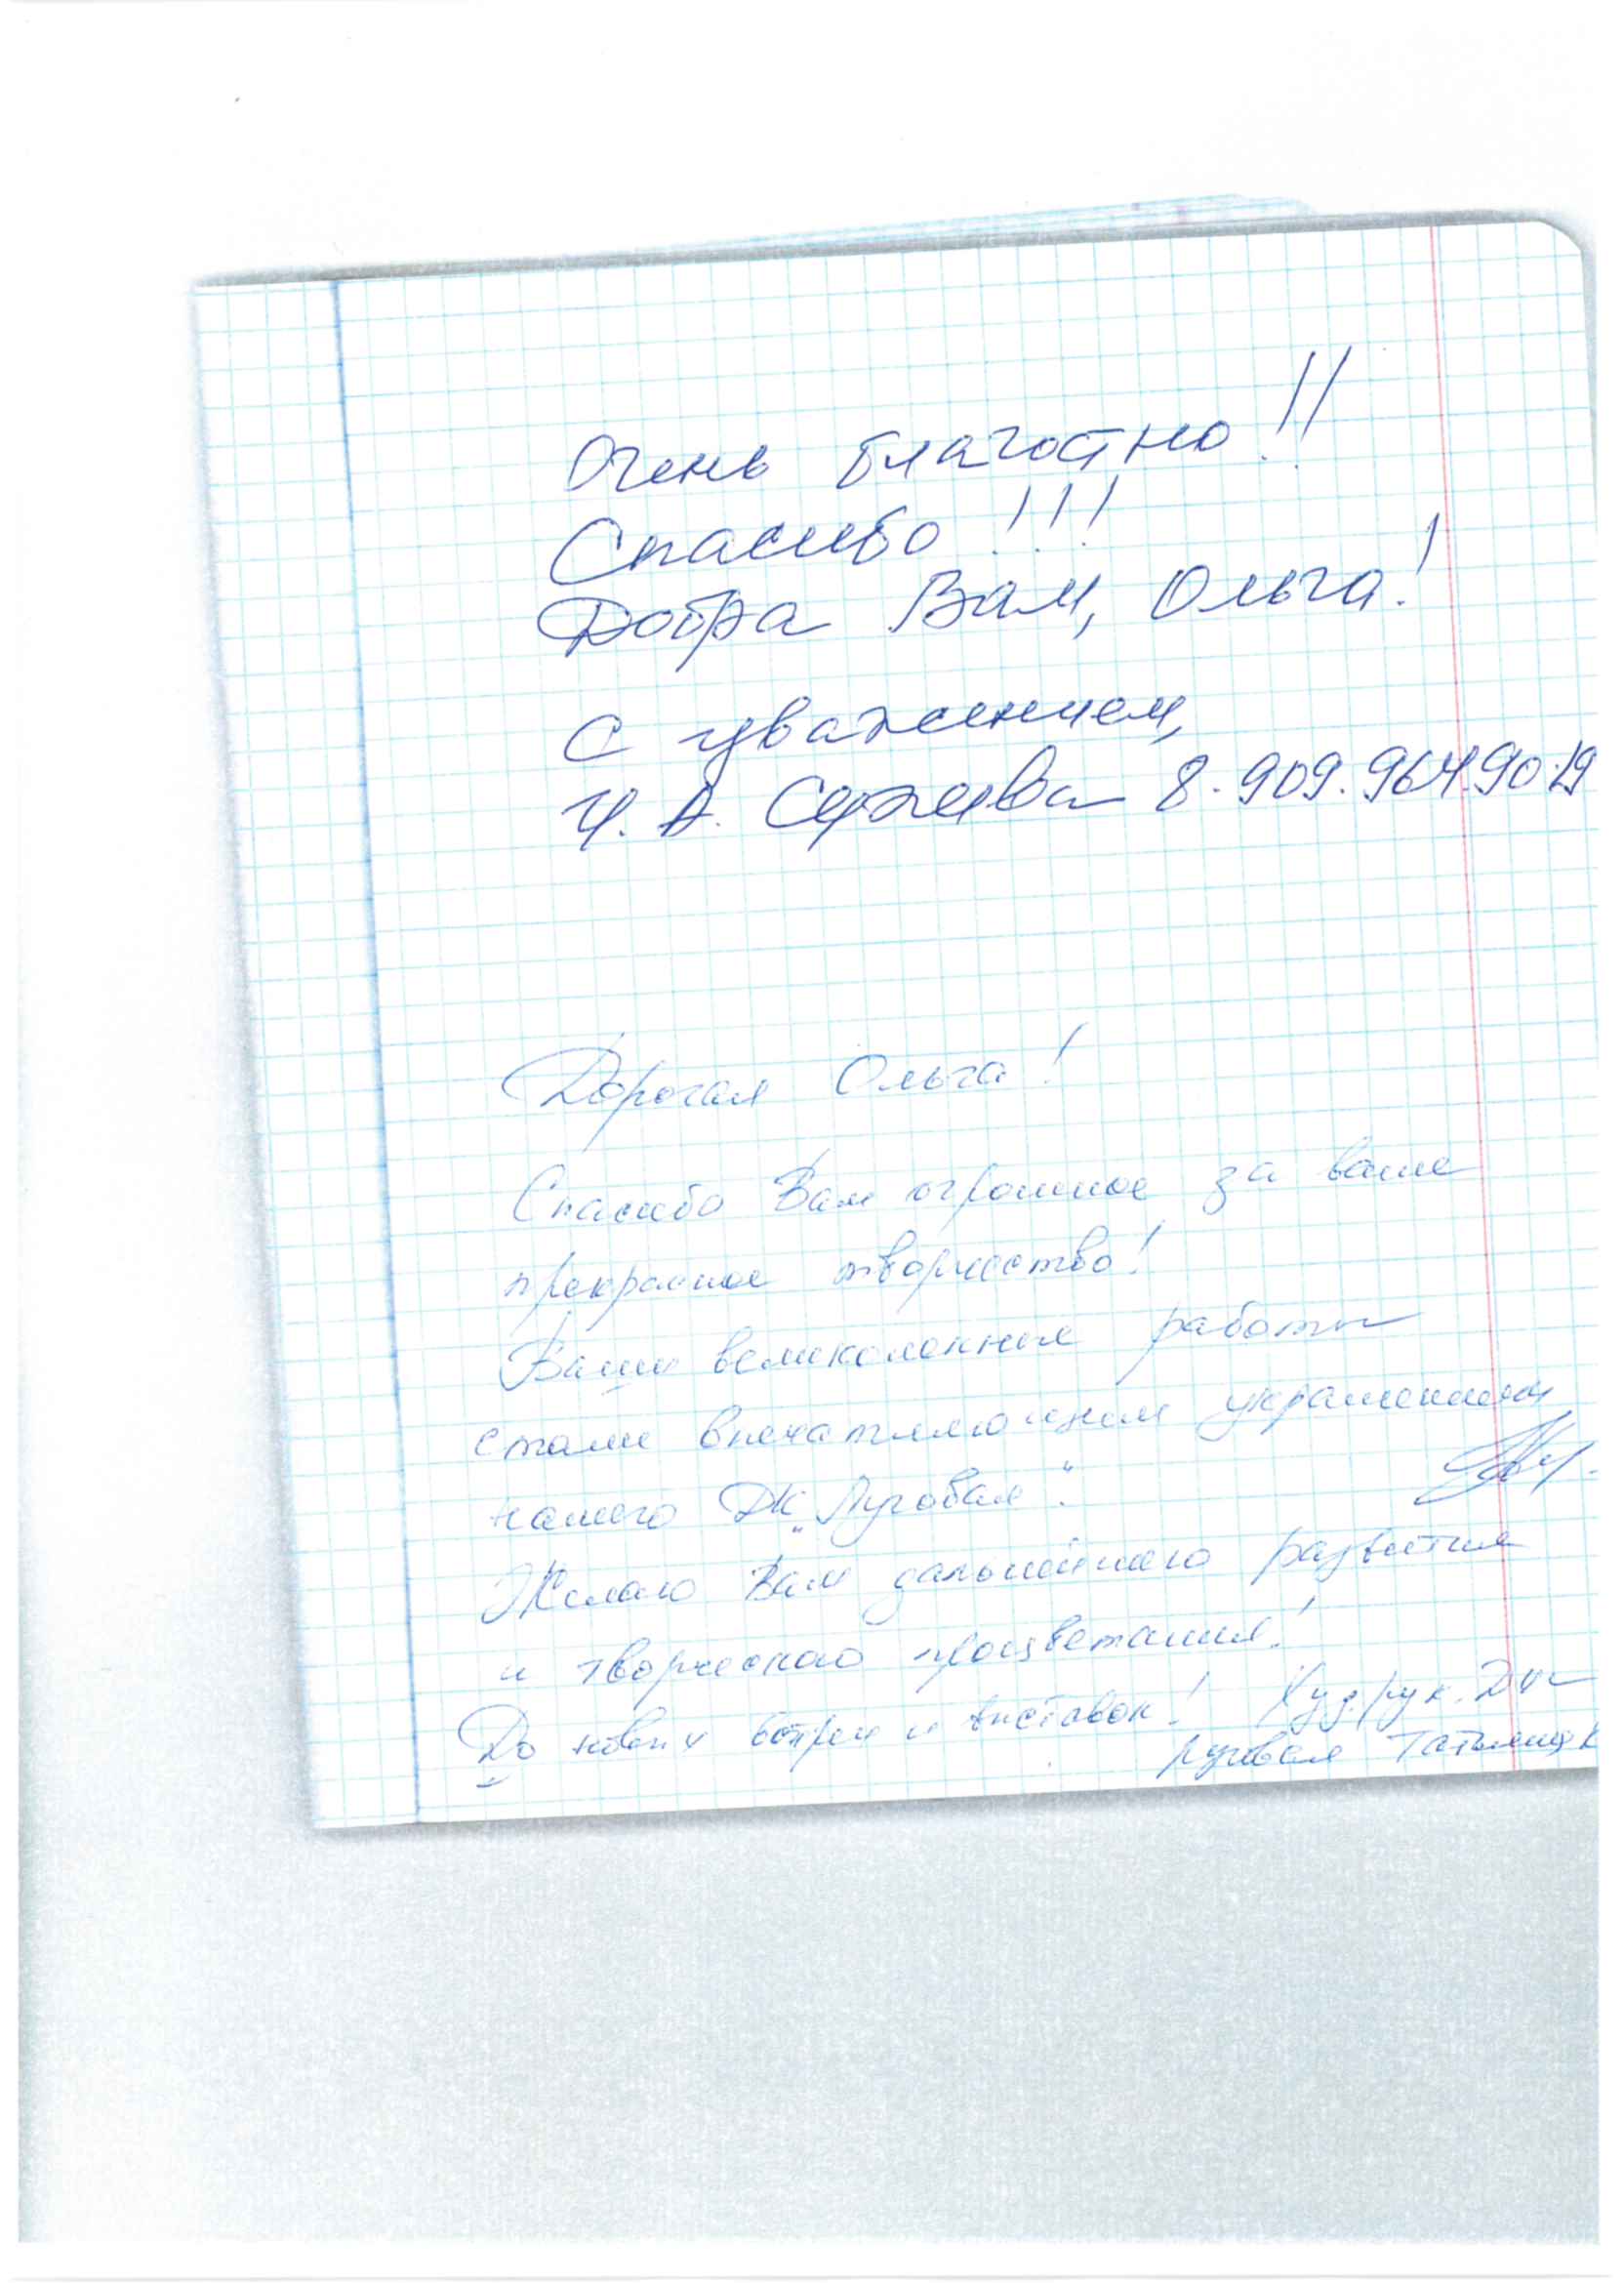 Очень благостно!!
Спасибо!!!
Добра Вам, Ольга!
С уважением,
И. А. 8.909.964.90.19
Дорогая Ольга!
Спасибо Вам огромное за ваше
прекрасное творчество!
Ваши великолепные работы
стали впечатляющим украшением
нашего ДК „Луговая“.
Желаю Вам дальнейшего развития
и творческого процветания!
До новых встреч и выставок! Худ. рук. ДК
Луговая